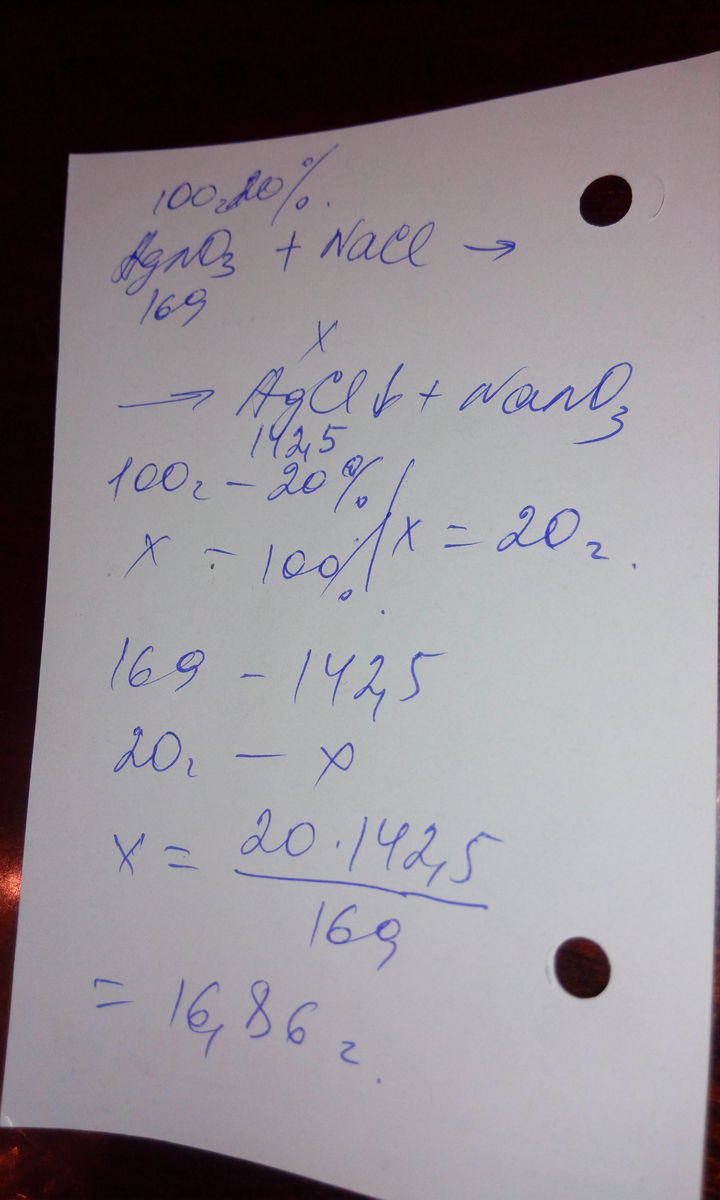 100г 20%.
AgNO3 + NaCl →
169
x
→ AgCl↓ + NaNO3
142,5
100г – 20%
x – 100%. x = 20г.
169 – 142,5
20г – x
x = 20 · 142,5
169
= 16,86г.